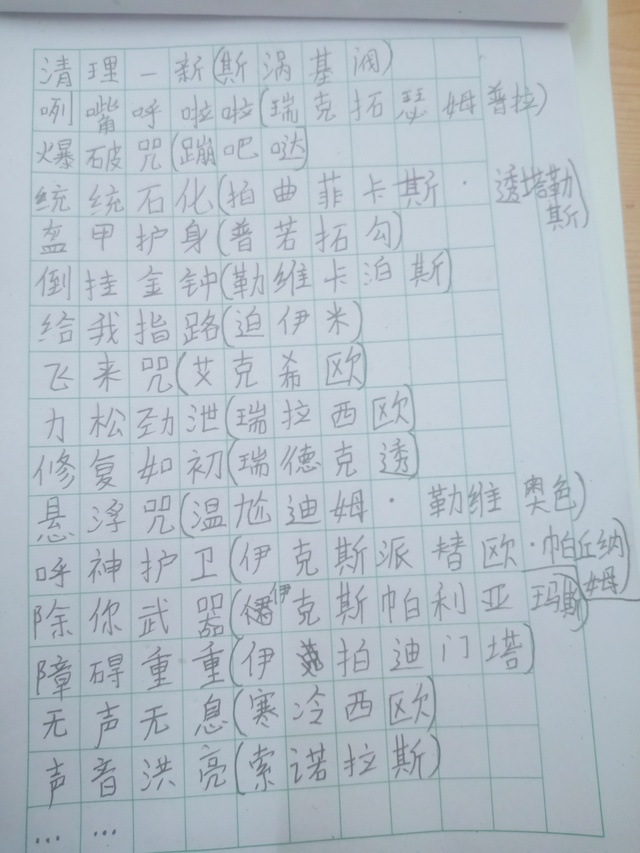 清理一新(斯涡基阀)
咧嘴呼啦啦(瑞克拓瑟姆普拉)
爆破咒(蹦吧哒)
统统石化(拍曲菲卡斯·透塔勒斯)
盔甲护身(普若拓勾)
倒挂金钟(勒维卡泊斯)
给我指路(迫伊米)
飞来咒(艾克希欧)
力松劲泄(瑞拉西欧)
修复如初(瑞德克透)
悬浮咒(温尬迪姆·勒维奥色)
呼神护卫(伊克斯派替欧·帕丘纳姆)
除你武器(伊克斯帕利亚玛斯)
障碍重重(伊拍迪门塔)
无声无息(寒冷西欧)
声音洪亮(索诺拉斯)
… …